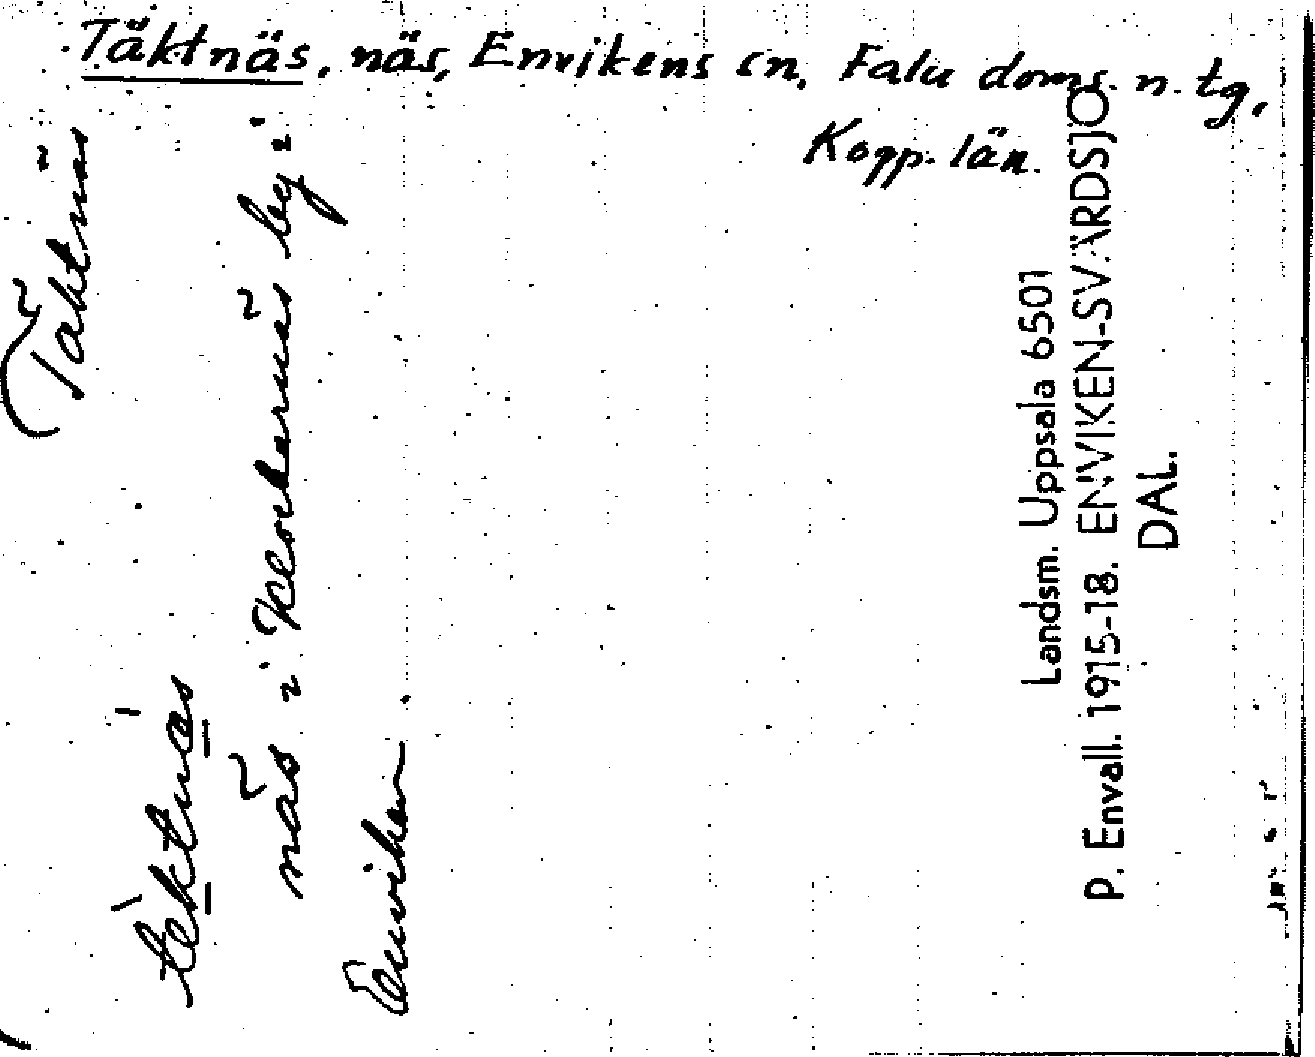 Täktnäs, näs, Envikens sn, Falu doms. n. tg,
Kopp. län.
Täktnäs
tèktnás
näs i Klockarnäs by i
Enviken
Landsm. Uppsala 6501
P. Envall. 1915-18. ENVIKEN-SVÄRDSJÖ
DAL.